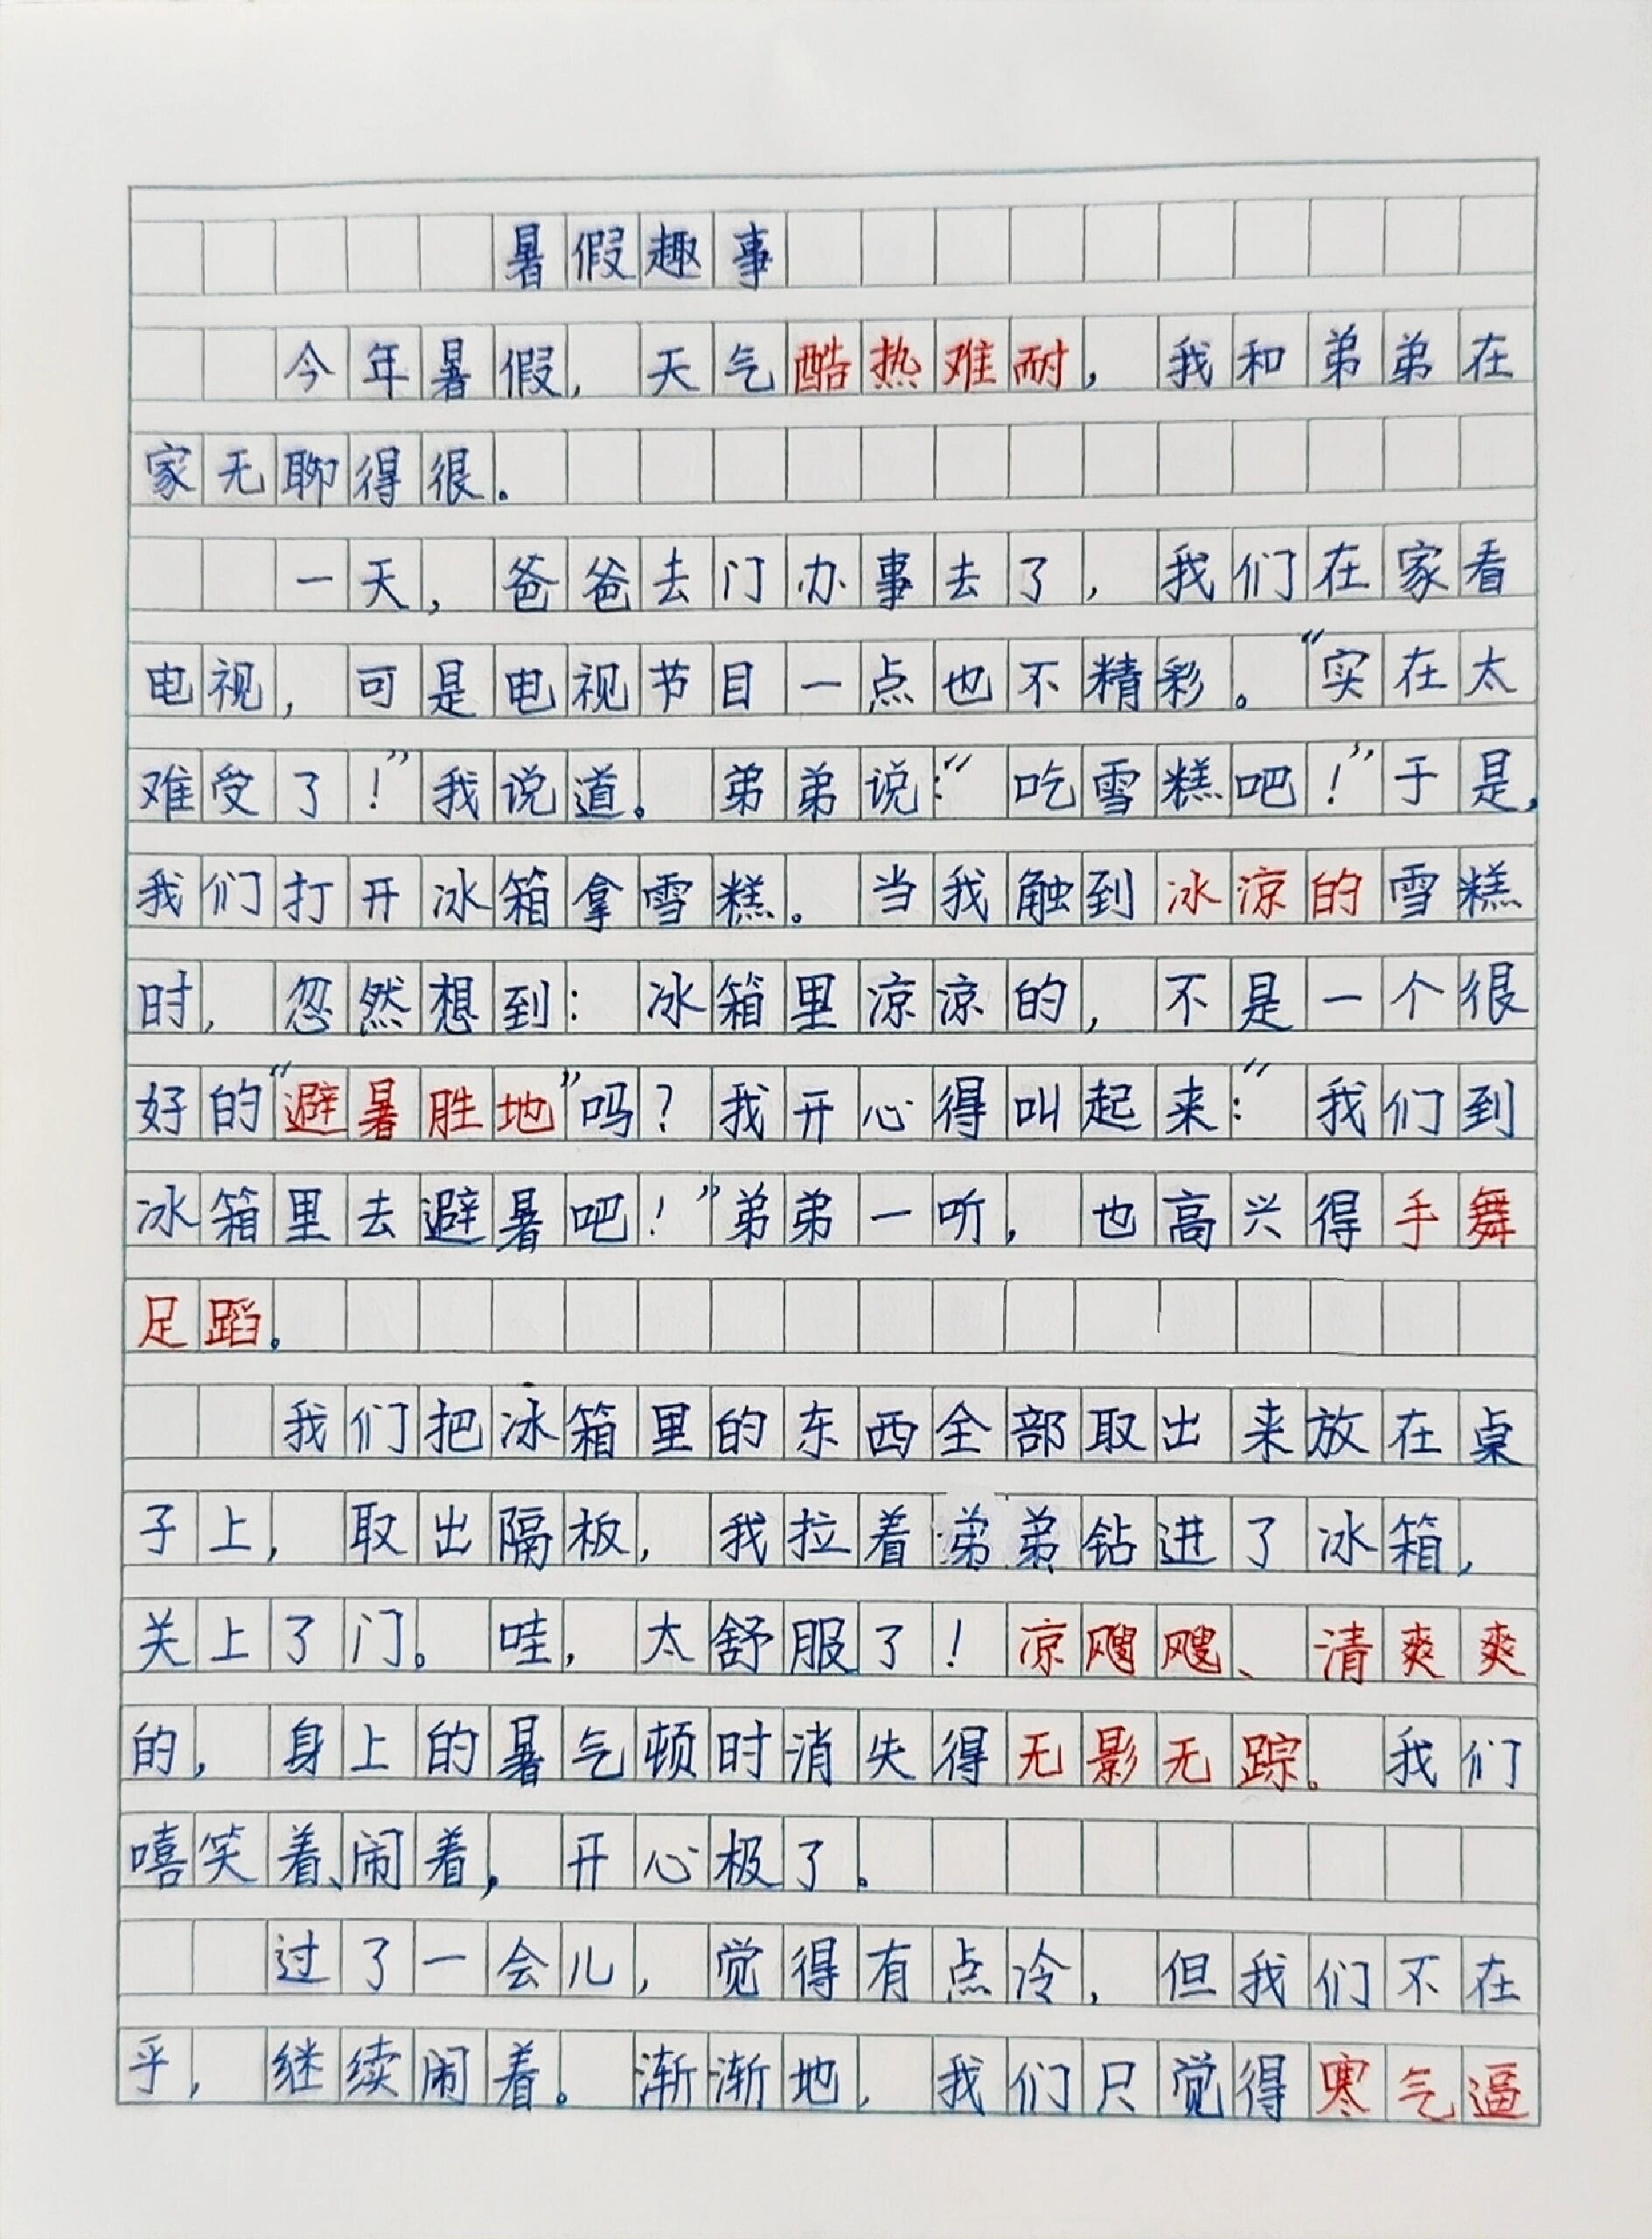 暑假趣事
今年暑假，天气酷热难耐，我和弟弟在
家无聊得很。
一天，爸爸去门办事去了，我们在家看
电视，可是电视节目一点也不精彩。“实在太
难受了！”我说道。弟弟说：“吃雪糕吧！”于是，
我们打开冰箱拿雪糕。当我触到冰凉的雪糕
时，忽然想到：冰箱里凉凉的，不是一个很
好的“避暑胜地”吗？我开心得叫起来：“我们到
冰箱里去避暑吧！”弟弟一听，也高兴得手舞
足蹈。
我们把冰箱里的东西全部取出来放在桌
子上，取出隔板，我拉着弟弟钻进了冰箱，
关上了门。哇，太舒服了！凉飕飕、清爽爽
的，身上的暑气顿时消失得无影无踪。我们
嘻笑着、闹着，开心极了。
过了一会儿，觉得有点冷，但我们不在
乎，继续闹着。渐渐地，我们只觉得寒气逼